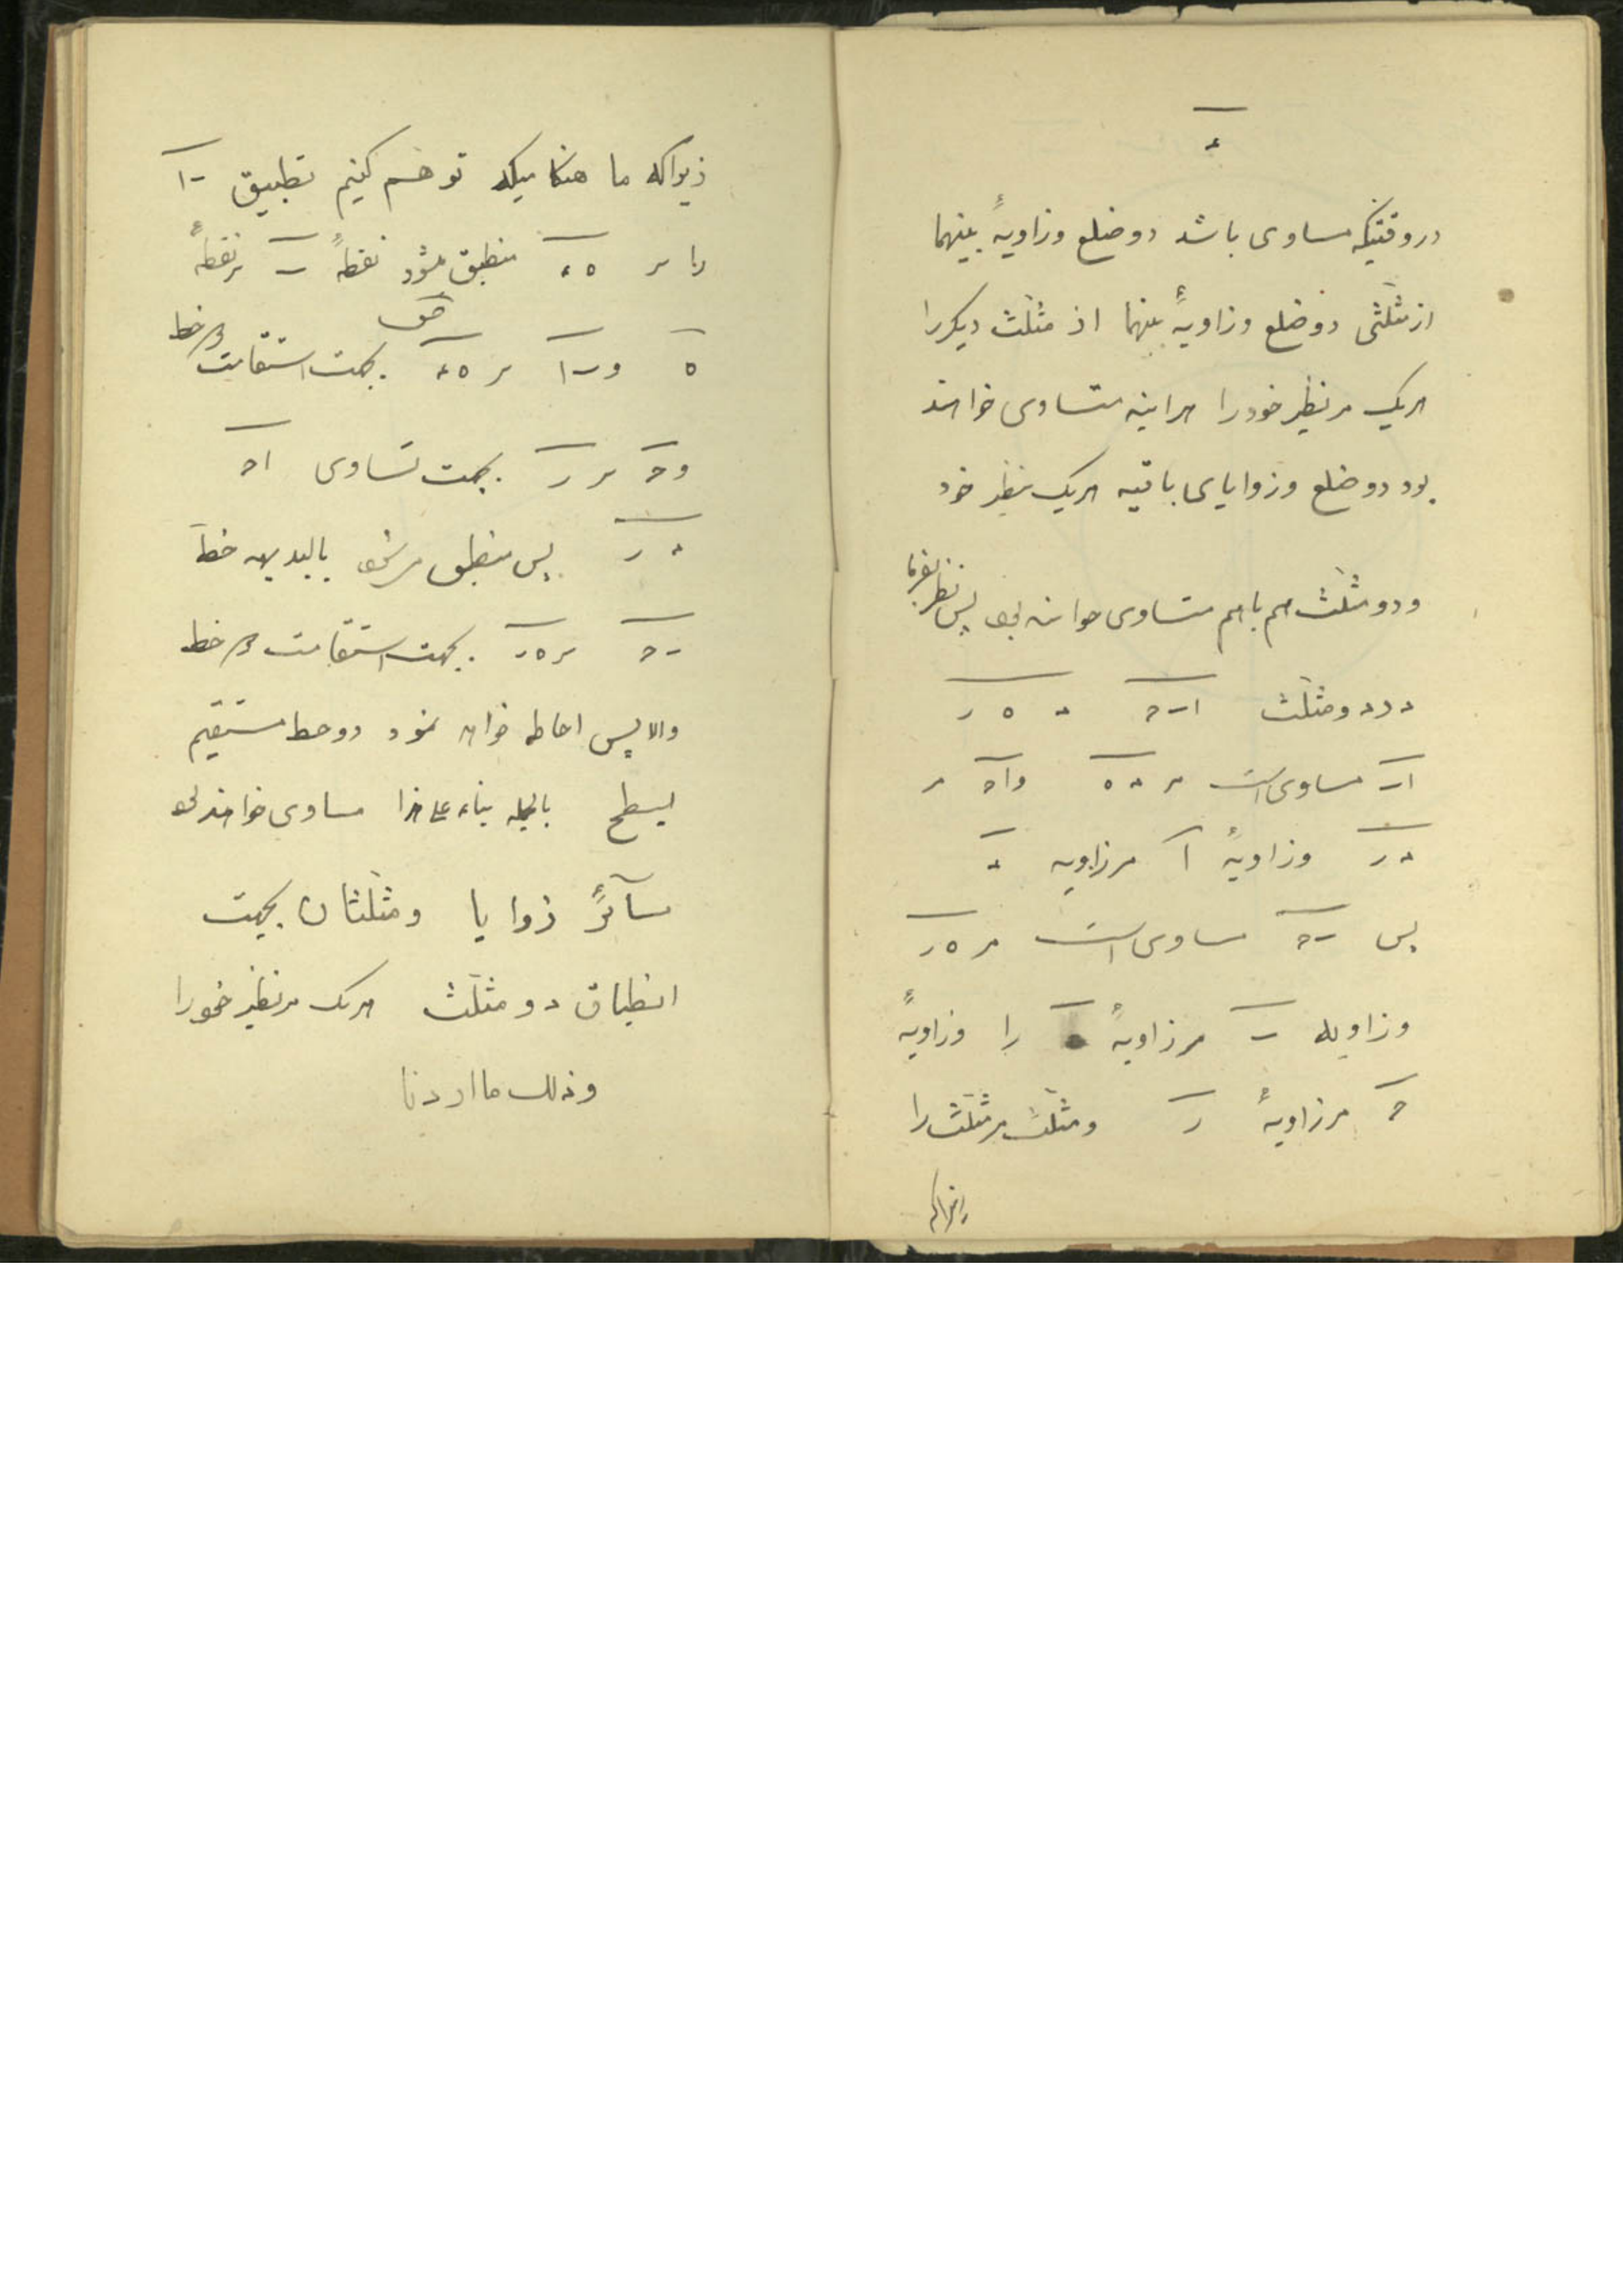 ء
در وقتیکه مساوی باشد دو ضلع و زاویهٔ بینهما
از مثلثی دو ضلع و زاویهٔ بینهما از مثلث دیگر را
هریک مر نظیر خود را هراینه متساوی خواهند
بود دو ضلع و زوایای باقیه هریک نظیر خود
و دو مثلث هم باهم متساوی خواهند بود پس
در دو مثلث ا ب ح ء ه ر
ا ب مساوی است مر ء ه و ا ح مر
ء ر و زاویهٔ ا مر زاویه ء
پس ب ح مساوی است مر ه ر
و زاویه ب مر زاویهٔ ه را و زاویهٔ
ح مر زاویهٔ ر و مثلث مر مثلث را
زیراکه
زیراکه ما هنگامیکه توهم کنیم تطبیق ب ا
را بر ه ء منطبق میشود نقطهٔ ب بر نقطهٔ
ه و ب ا بر ه ء بجهت استقامت هر خط
و ح بر ر بجهت تساوی ا ح
ء ر پس منطبق میشود بالبدیهه خط
ب ح بر ه ر بجهت استقامت هر خط
والا پس احاطه خواهد نمود دو خط مستقیم
بسطح بالجمله بناء علی هذا مساوی خواهند بود
سآئر زوایا و مثلثان بجهت
انطباق دو مثلث هریک مر نظیر خود را
و ذلک ما اردنا